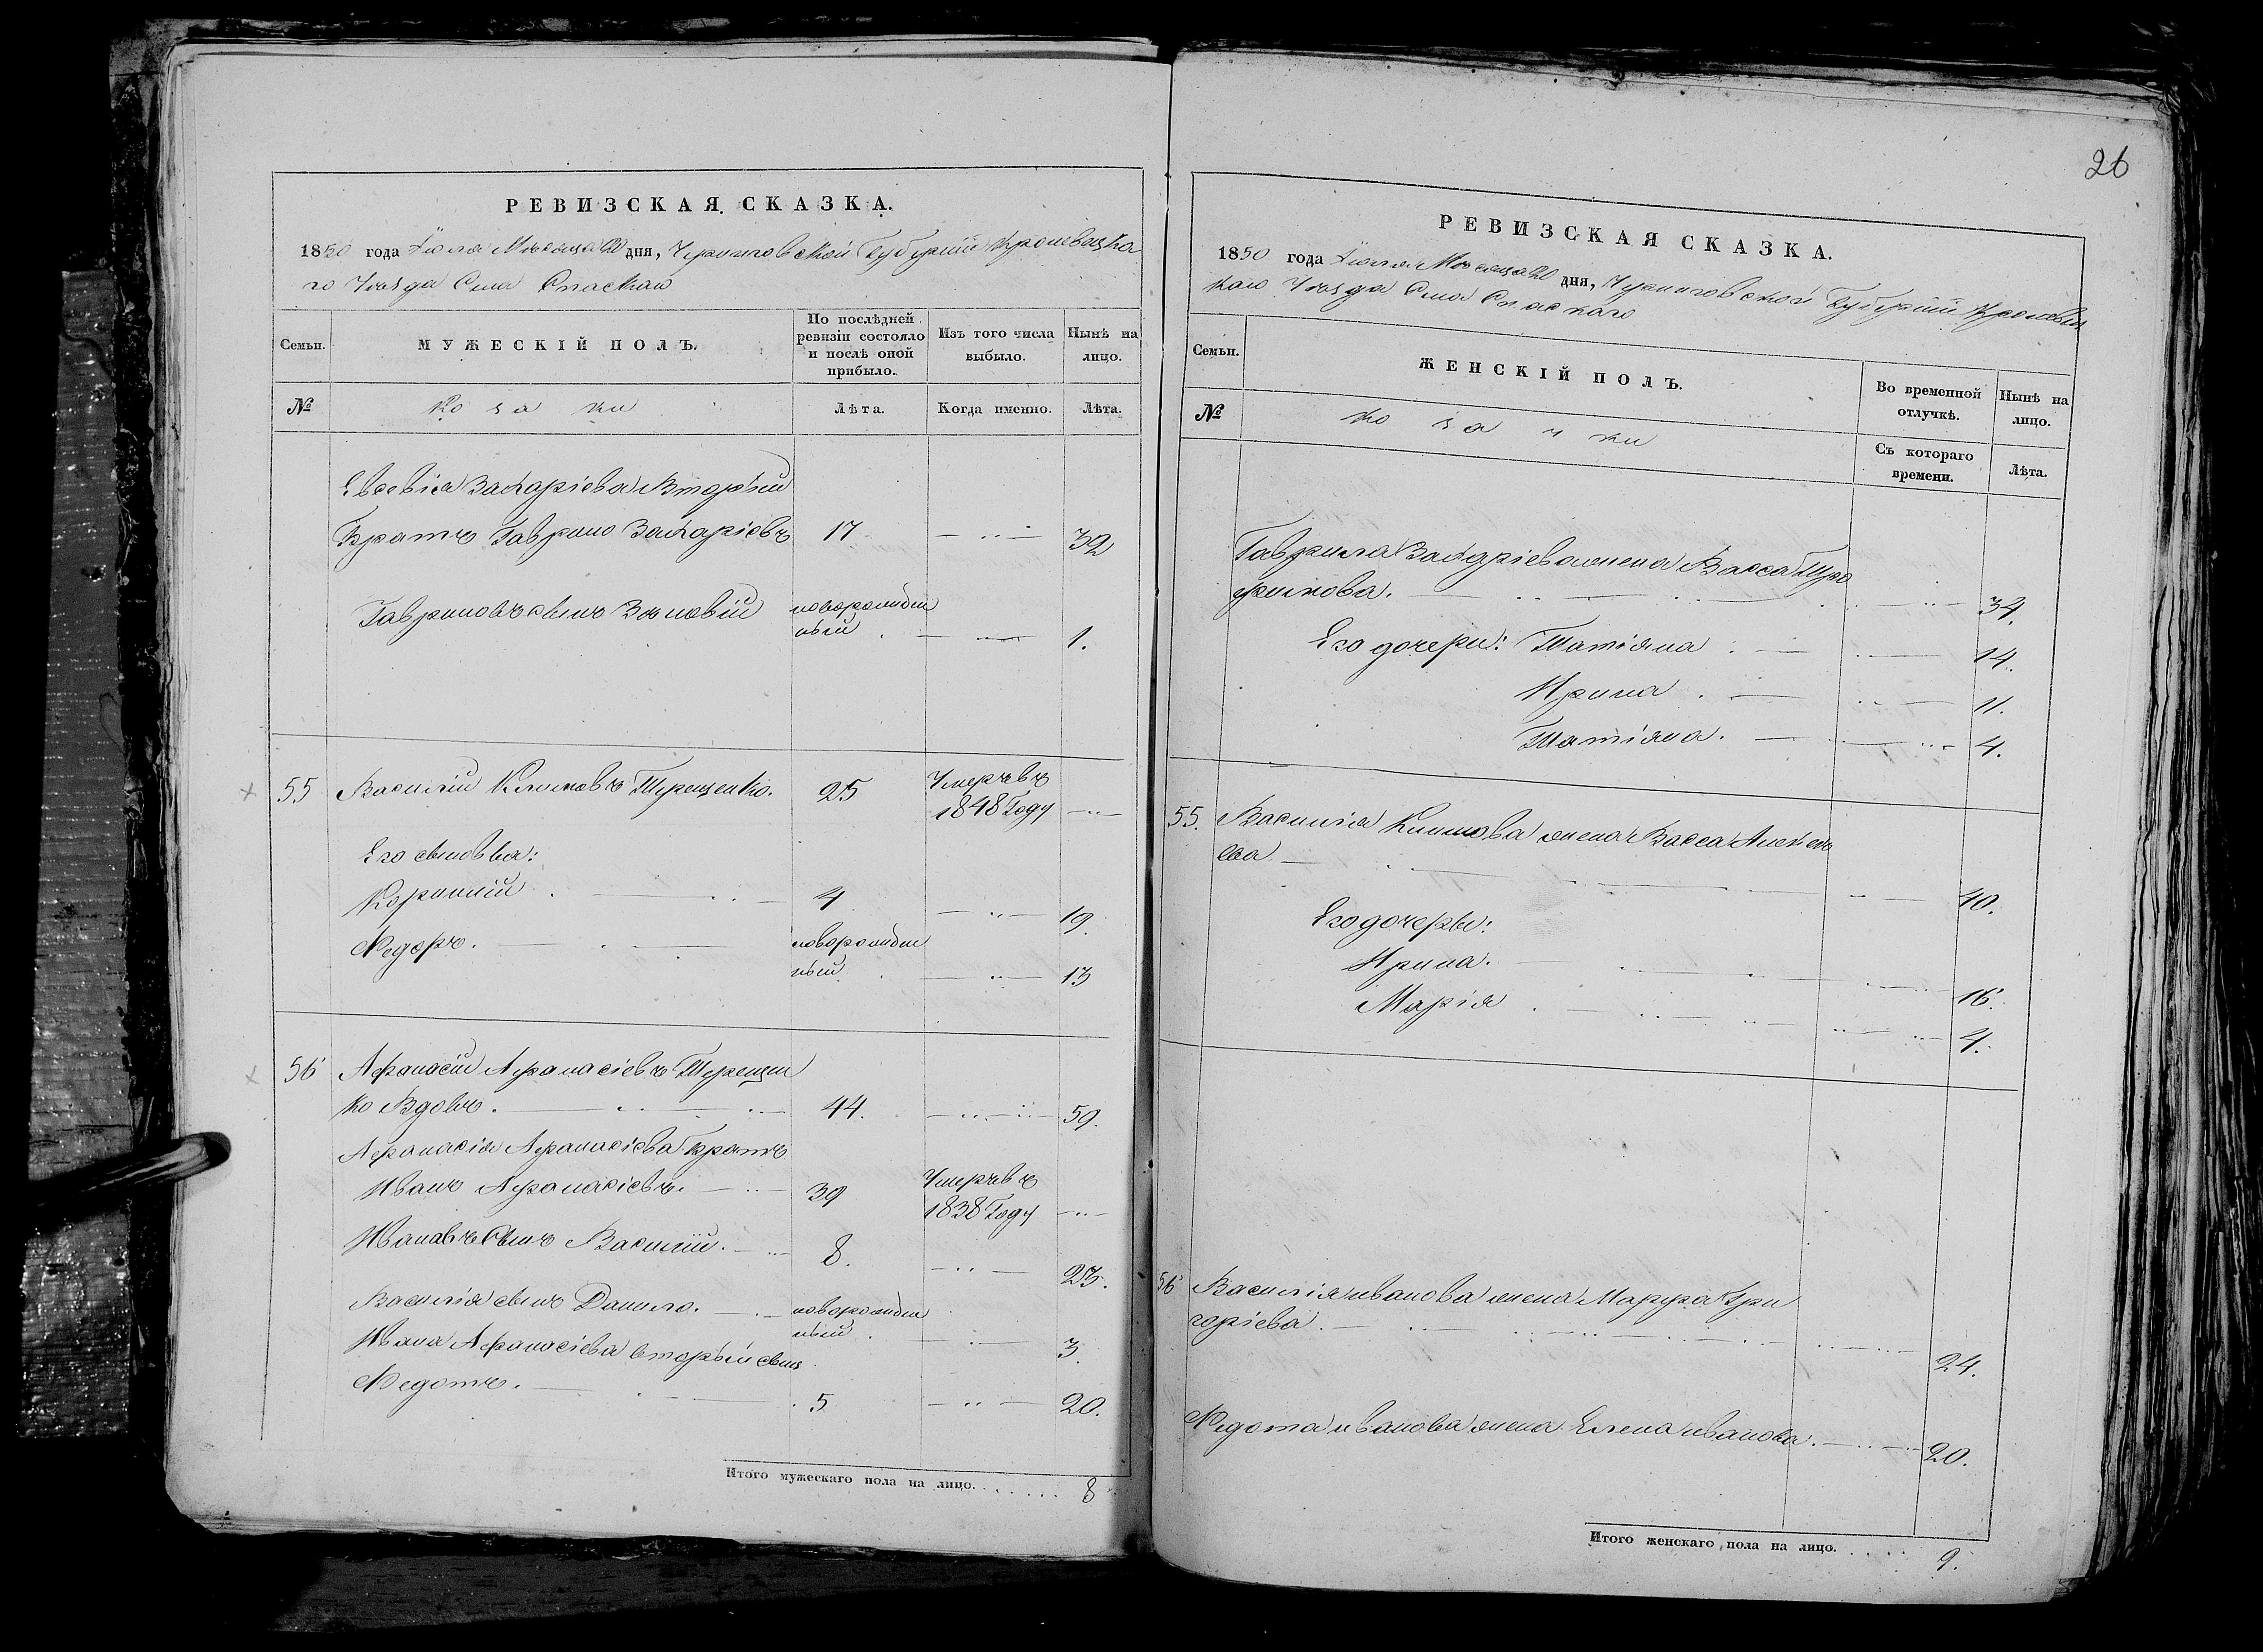 РЕВИЗСКАЯ СКАЗКА.
1850 года Іюля Месяца 20 дня, Черниговской Губерніи Кролевецка
го Уезда Села Спаскаго
Семьи.
МУЖЕСКІЙ ПОЛЪ.
По послѣдней ревизіи состояло и послѣ оной прибыло.
Изъ того числа выбыло.
Нынѣ на лицо.
№
козаки
Лѣта.
Когда именно.
Лѣта.
Евсевія Захаріева Вторый
Братъ Гаврило Захаріевъ 17 32
Гавриловъ сынъ Зеновій новорожден
ный 1.
55 Василій Климовъ Терещенко. 25 Умеръ въ
1848 Году
Его сыновья:
Корнилій 4 19.
Федоръ. новорожден
ный 13
56 Афанасій Афанасіевъ Терещен
ко Вдовъ. 44. 59.
Афанасія Афанасіева братъ
Иванъ Афанасіевъ. 39 Умеръ въ
1838 Году
Ивановъ Сынъ Василій. 8. 23.
Василія сынъ Данило. новорожден
ный 3.
Ивана Афанасіева вторый сынъ
Федотъ. 5 20.
Итого мужескаго пола на лицо. 8
26
РЕВИЗСКАЯ СКАЗКА.
1850 года Іюля Месяца 20 дня, Черниговской Губерніи Кролевец
каго Уезда Села Спаскаго
Семьи.
ЖЕНСКІЙ ПОЛЪ.
Во временной отлучкѣ.
Нынѣ на лицо.
№
козачки
Съ котораго времени.
Лѣта.
Гаврила Захаріева жена Васса Тро
фимова. 34.
Его дочери: Татіяна 14.
Ирина 11.
Татіяна. 4.
55. Василія Климова жена Васса Алексѣ
ева 40.
Его дочеры:
Ирина. 16.
Марія 4.
56 Василія иванова жена Марфа Гри
горіева. 24.
Федота иванова жена Елена иванова. 20.
Итого женскаго пола на лицо. 9.